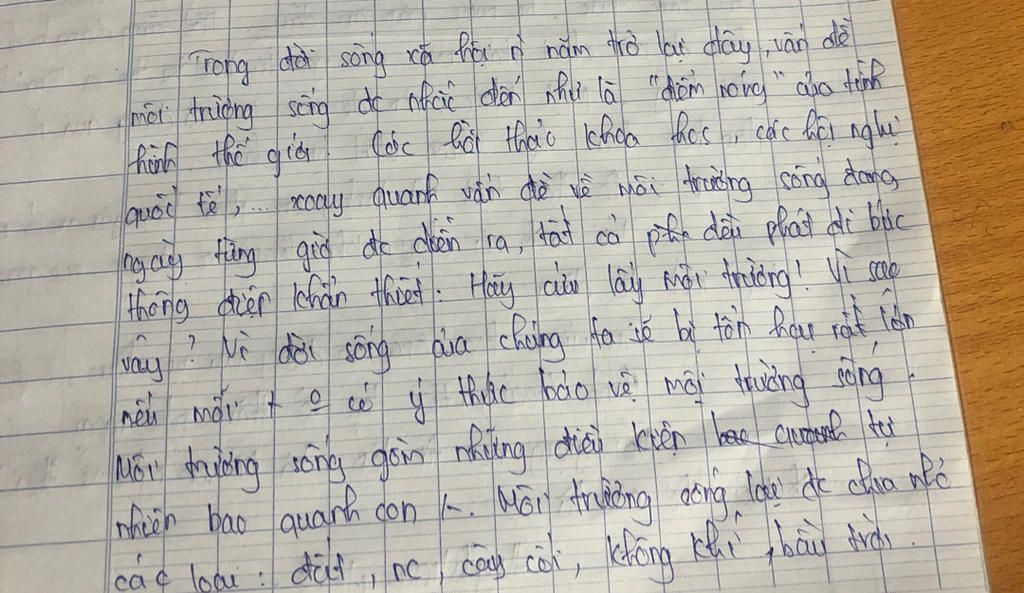 Trong đời sống xã hội n năm trở lại đây, vấn đề
môi trường sống đc nhắc đến như là "điểm nóng" của tình
hình thế giới. Các hội thảo khoa học, các hội nghị
quốc tế,... xoay quanh vấn đề về môi trường sống đang
ngày từng giờ đc diễn ra, tất cả đều phát đi bức
thông điệp khẩn thiết: Hãy cứu lấy môi trường! Vì sao
vậy? Vì đời sống của chúng ta sẽ bị tổn hại rất lớn
nếu mỗi + o có ý thức bảo vệ môi trường sống.
Môi trường sống gồm những điều kiện tự
nhiên bao quanh con . Môi trường sống lại đc chia nhỏ
các loại: đất, nc, cây cối, không khí, bầu trời.